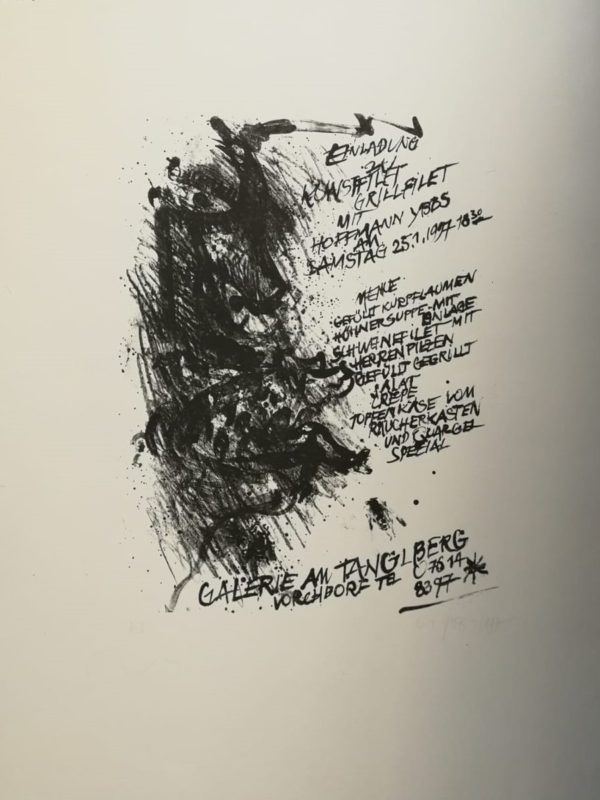 EINLADUNG
ZU
KUNSTFILET
GRILLFILET
MIT
HOFFMANN YBBS
AM
SAMSTAG 25.1.1997 18 30
MENUE
GEFÜLT KURPFLAUMEN
HÜHNERSUPPE MIT
EINLAGE
SCHWEINEFILET MIT
HERRENPILZEN
GEFÜLT GEGRILLT
SALAT
CREPE
TOPFENKÄSE VOM
RÄUCHERKASTEN
UND QUARGEL
SPEZIAL
GALERIE AM TANGLBERG
VORCHDORF TEL 07614
8397